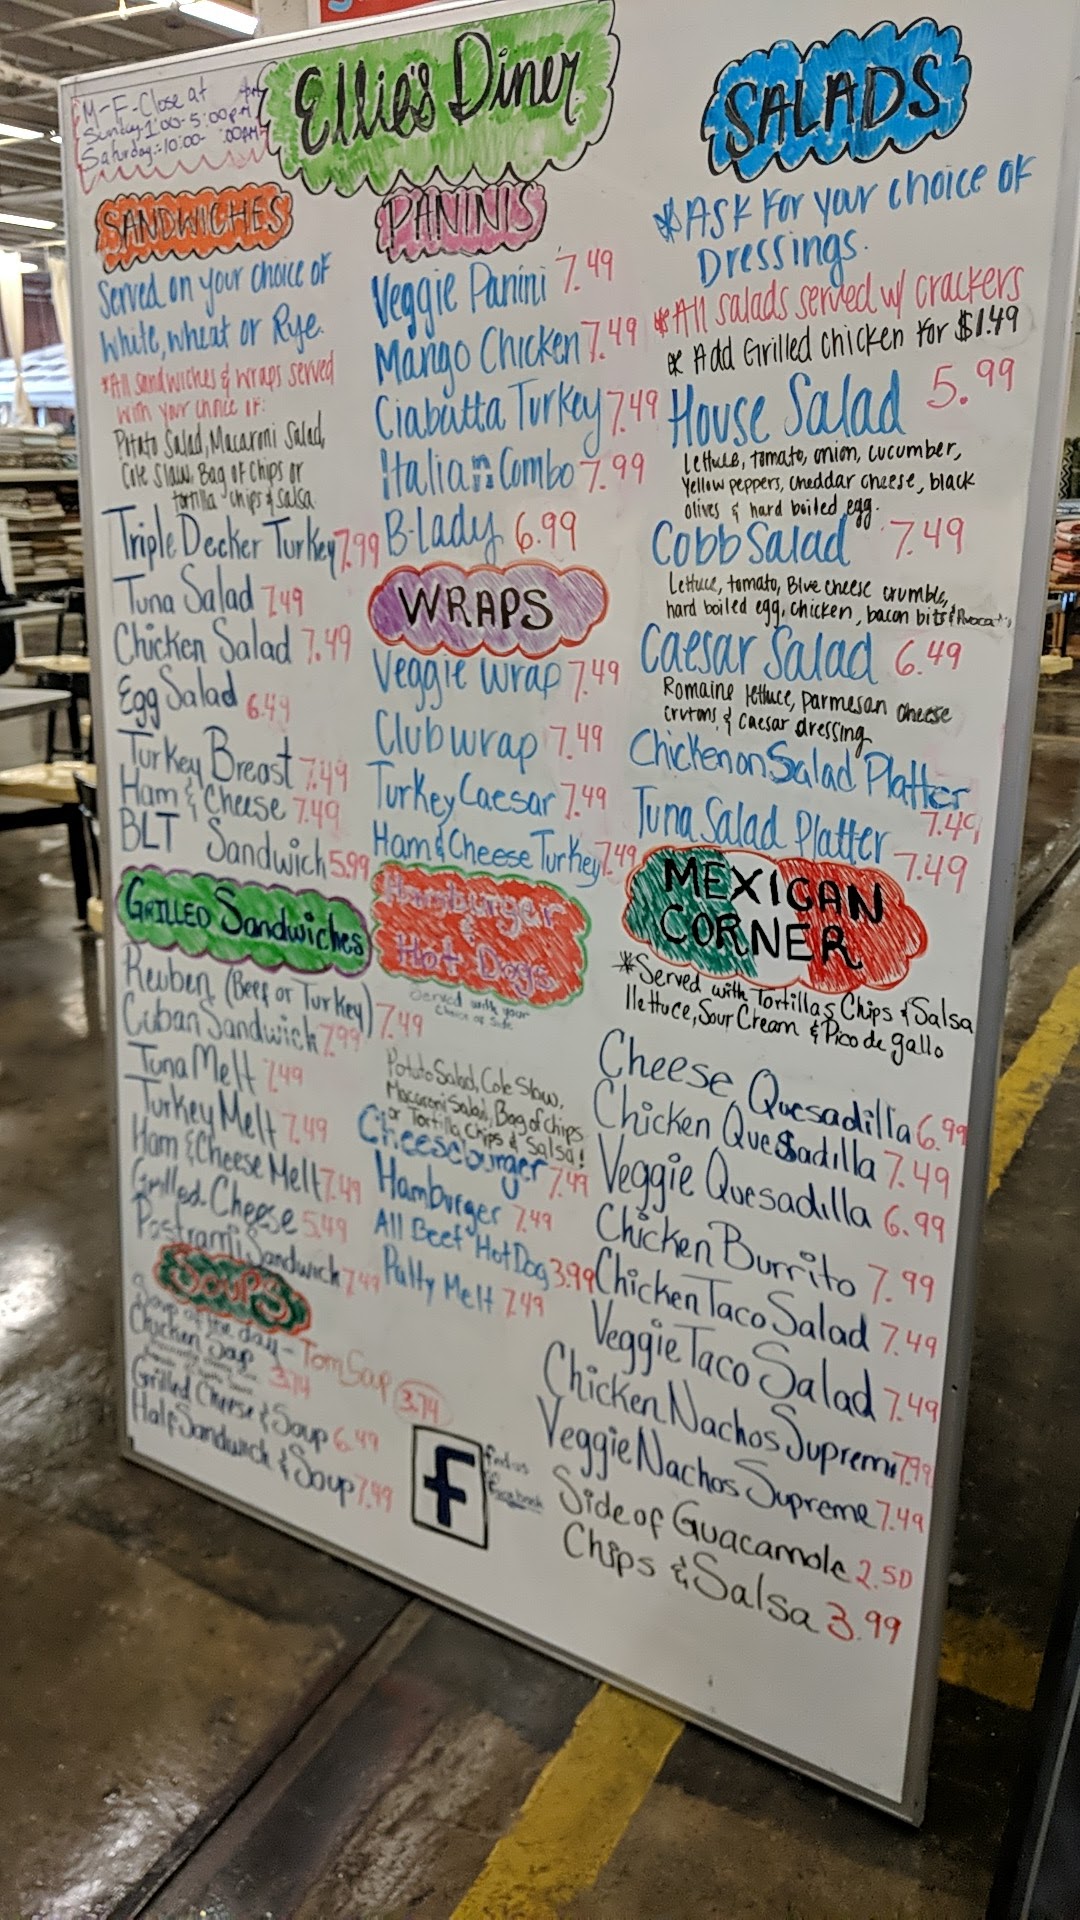 M-F-Close at
Sunday-1:00-5:00pm
Saturday:-10:00-
Ellie's Diner
SANDWICHES
Served on your choice of
White, wheat or Rye.
*All sandwiches & wraps served
with your choice of:
Potato Salad, Macaroni Salad,
Cole Slaw, Bag of Chips or
tortilla chips & salsa
Triple Decker Turkey 7.99
Tuna Salad 7.49
Chicken Salad 7.49
Egg Salad 6.49
Turkey Breast 7.49
Ham & Cheese 7.49
BLT Sandwich 5.99
GRILLED Sandwiches
Reuben (Beef or Turkey) 7.49
Cuban Sandwich 7.99
Tuna Melt 7.49
Turkey Melt 7.49
Ham & Cheese Melt 7.49
Grilled Cheese 5.49
Pastrami Sandwich 7.49
SOUPS
Soup of the day - Tom Soup 3.74
Chicken Soup 3.74
Grilled Cheese & Soup 6.49
Half Sandwich & Soup 7.49
PANINIS
Veggie Panini 7.49
Mango Chicken 7.49
Ciabatta Turkey 7.49
Italian Combo 7.99
B-Lady 6.99
WRAPS
Veggie Wrap 7.49
Club wrap 7.49
Turkey Caesar 7.49
Ham & Cheese Turkey 7.49
Hamburger
&
Hot Dogs
Served with your
Choice of Side
Potato Salad, Cole Slaw,
Macaroni Salad, Bag of chips
or Tortilla Chips & Salsa!
Cheeseburger 7.49
Hamburger 7.49
All Beef Hot Dog 3.99
Patty Melt 7.49
f
find us
on
facebook
SALADS
*Ask For your choice of
Dressings.
*All salads served w/ crackers
* Add Grilled chicken for $1.49
House Salad 5.99
Lettuce, tomato, onion, cucumber,
Yellow peppers, cheddar cheese, black
olives & hard boiled egg.
Cobb Salad 7.49
Lettuce, tomato, Blue cheese crumble,
hard boiled egg, chicken, bacon bits &
Caesar Salad 6.49
Romaine lettuce, parmesan cheese
crutons & caesar dressing
Chicken on Salad Platter 7.49
Tuna Salad Platter 7.49
MEXICAN
CORNER
*Served with Tortillas Chips & Salsa
llettuce, Sour Cream & Pico de gallo
Cheese Quesadilla 6.99
Chicken Quesadilla 7.49
Veggie Quesadilla 6.99
Chicken Burrito 7.99
Chicken Taco Salad 7.49
Veggie Taco Salad 7.49
Chicken Nachos Supreme 7.99
Veggie Nachos Supreme 7.49
Side of Guacamole 2.50
Chips & Salsa 3.99